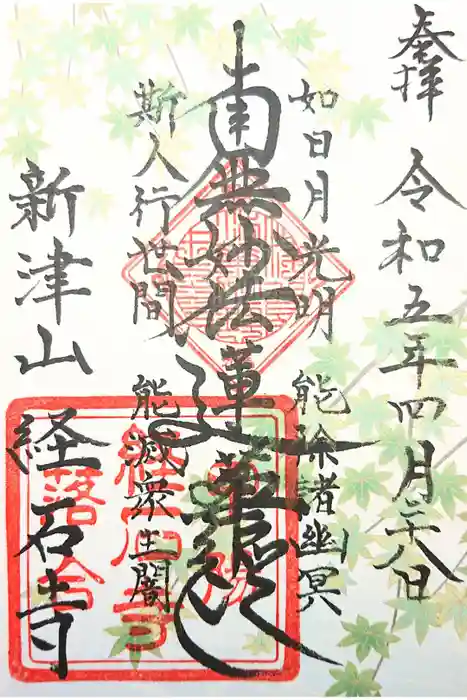 奉拝 令和五年四月二十八日
如日月光明 能除諸幽冥
南無妙法蓮華経
斯人行世間 能滅衆生闇
新津山 経石寺